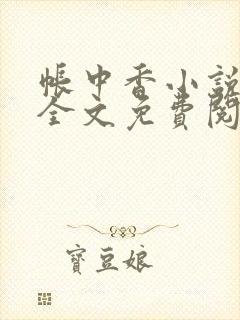 帳中香小說
全文免費閱
寶豆娘